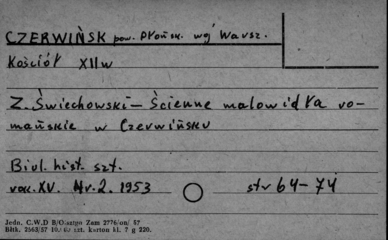 CZERWIŃSK pow. Płońsk. woj Warsz.
Kościół XII w
Z. Świechowski – Ścienne malowidła ro-
mańskie w Czerwińsku
Biul. hist. szt.
rok. XV. Nr. 2. 1953 str 64-74
Jedn. C.W.D B/Olsztyn Zam 2776/on/ 57
Błtk. 2663/57 szt. karton kl. 7 g 220.